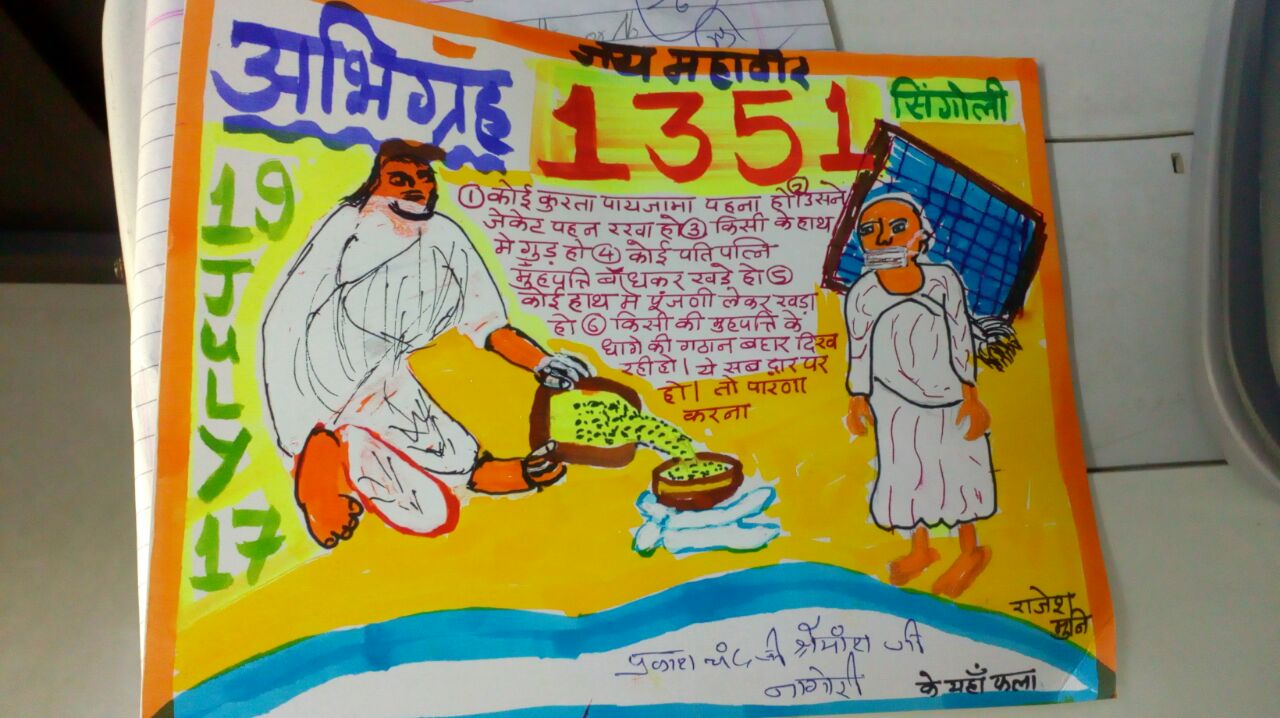 जय महावीर
अभिग्रह
1351
सिंगोली
19
July
17
① कोई कुरता पायजामा पहना हो ② उसने
जेकेट पहन रखा हो ③ किसी के हाथ
मे गुड़ हो ④ कोई पति पत्नि
मुँहपत्ति बाँधकर खड़े हो ⑤
कोई हाथ मे पूंजणी लेकर खड़ा
हो ⑥ किसी की मुहपत्ति के
धागे की गठान बहार दिख
रही हो। ये सब द्वार पर
हो। तो पारणा
करना
राजेश
मुनि
प्रकाश चंद जी जी
नागोरी
के यहाँ फला